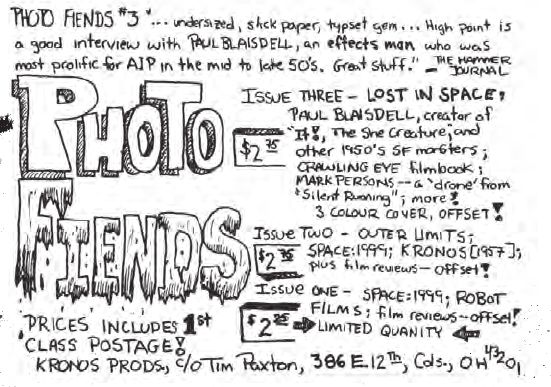 PHOTO FIENDS #3 "... undersized, slick paper, typset gem... High point is
a good interview with PAUL BLAISDELL, an effects man who was
most prolific for AIP in the mid to late 50's. Great stuff." — THE HAMMER
JOURNAL
PHOTO
FIENDS
ISSUE THREE - LOST IN SPACE;
PAUL BLAISDELL, creator of
"It!, The She Creature, and
other 1950's SF monsters;
CRAWLING EYE filmbook;
MARK PERSONS -- a 'drone' from
"Silent Running"; more!
3 COLOUR COVER, OFFSET!
$2.75
ISSUE TWO - OUTER LIMITS;
SPACE:1999; KRONOS [1957];
plus film reviews - offset!
$2.75
ISSUE ONE - SPACE:1999; ROBOT
FILMS; film reviews - offset!
LIMITED QUANITY
$2.25
PRICES INCLUDES 1st
CLASS POSTAGE!
KRONOS PRODS., c/o Tim Paxton, 386 E. 12th, Cols., OH 43201